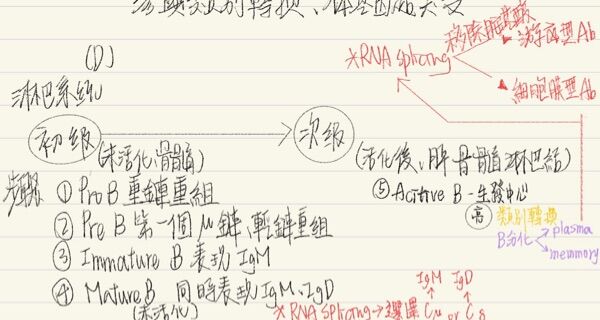 類別轉換、體
(D)
*RNA splicing
游离型Ab
細胞膜型Ab
淋巴系統
初級
次級
(未活化、骨髓)
(活化後、脾骨髓淋巴結)
步驟
① Pro B 重鏈重組
② Pre B 第一個 μ鏈、輕鏈重組
③ Immature B 表現 IgM
④ Mature B 同時表現 IgM、IgD
(未活化)
⑤ Acitive B - 生發中心
類別轉換
B分化
plasma
memmory
IgM IgD
*RNA splicing → 選擇 Cμ or Cδ